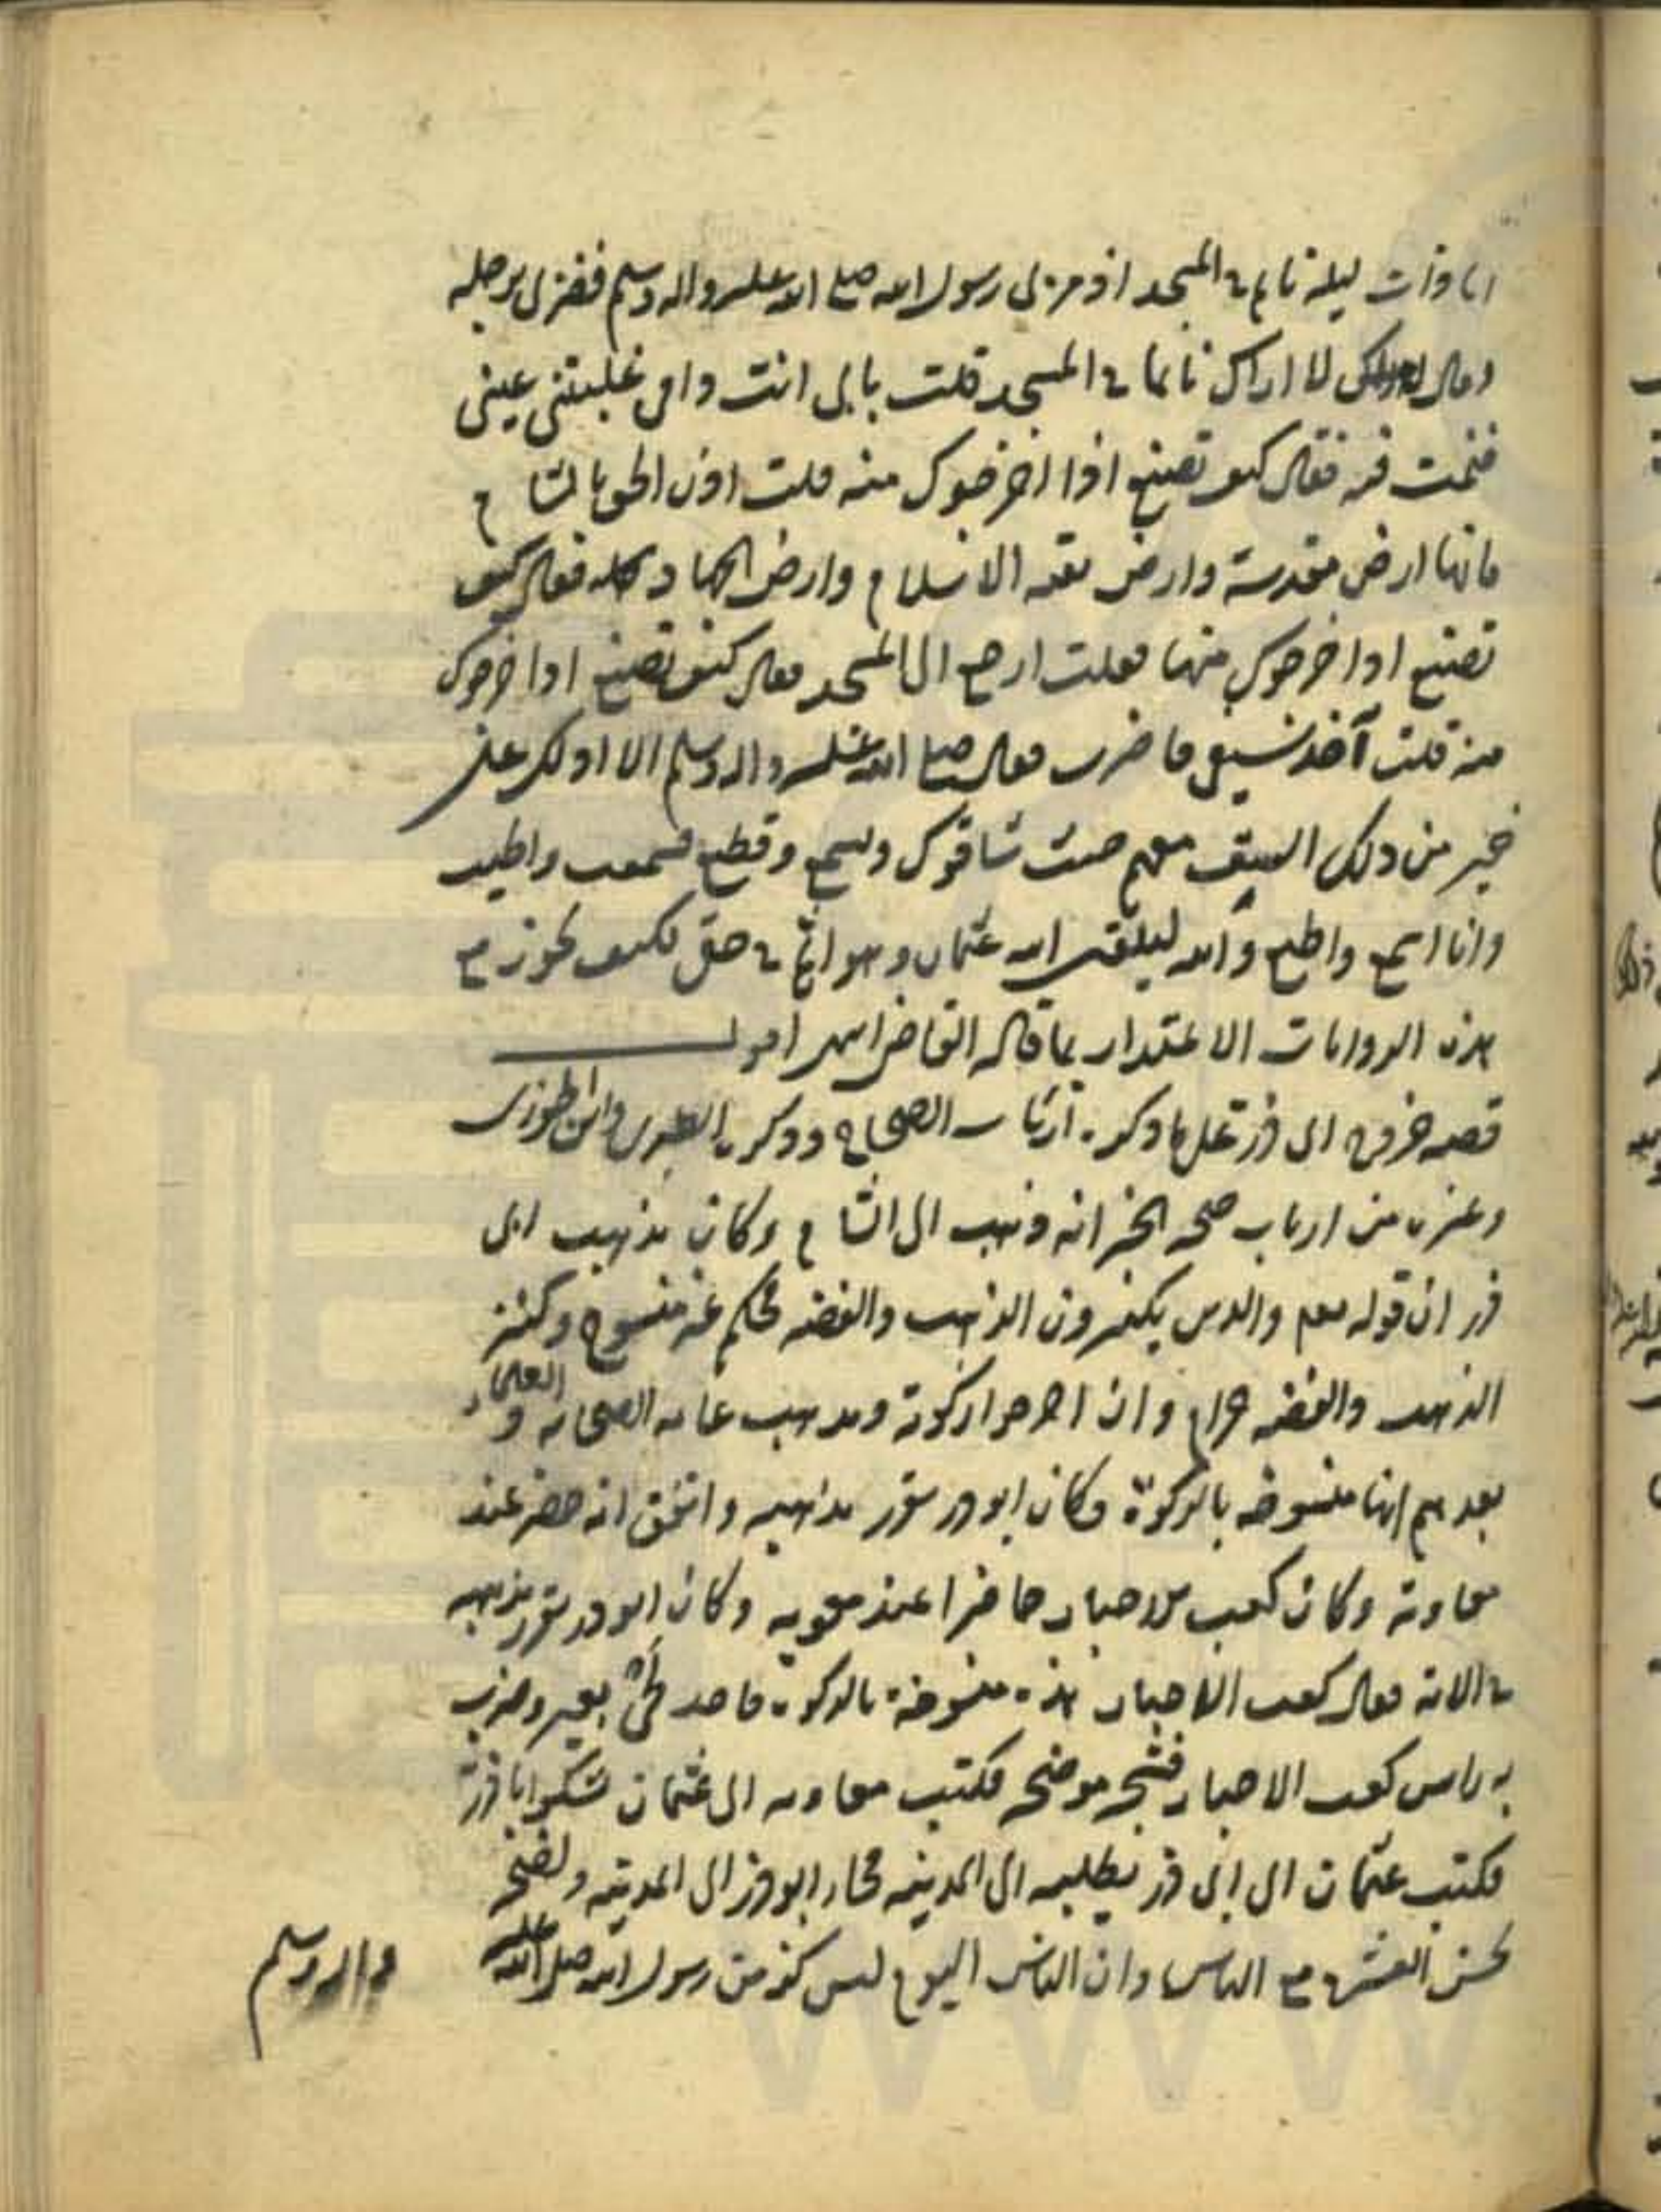 انا ذات ليلة نائم في المسجد اذ مر بي رسول الله صلى الله عليه واله وسلم فضربني برجله
وقال لا اراك نائما في المسجد قلت بابي انت وامي غلبتني عيني
فنمت فيه فقال كيف تصنع اذا اخرجوك منه قلت اذن الحق بالشام
فانها ارض مقدسة وارض بقية الاسلام وارض الجهاد فقال كيف
تصنع اذا اخرجوك منها فقلت ارجع الى المسجد فقال كيف تصنع اذا اخرجوك
منه قلت آخذ سيفي فاضرب فقال صلى الله عليه واله وسلم الا ادلك على
خير من ذلك السبق معهم حيث ساقوك وتسمع وتطيع فسمعت واطيع
وانا اسمع واطيع والله ليلقين الله عثمان وهو آثم في حقي فكيف يجوز مع
هذه الروايات الاعتذار بما قاله القاضي انتهى اقول
قصة خروج ابي ذر على ما ذكره ارباب الصحاح وذكره الطبري وابن الجوزي
وغيره من ارباب صحة الخبر انه ذهب الى الشام وكان مذهب ابي
ذر ان قوله تعم والذين يكنزون الذهب والفضة محكم غير منسوخ وكنز
الذهب والفضة حرام وان اخرجوا زكوته ومذهب عامة الصحابة والعلماء
بعدهم انها منسوخة بالزكوة وكان ابوذر يقرر مذهبه واتفق انه حضر عند
معاوية وكان كعب الاحبار حاضرا عند معوية وكان ابوذر يقرر مذهبه
في الاية فقال كعب الاحبار هذه منسوخة بالزكوة فاخذ لحى بعير وضرب
به راس كعب الاحبار فشجه موضحة فكتب معاوية الى عثمان يشكو اباذر
فكتب عثمان الى ابي ذر يطلبه الى المدينة فجاء ابوذر الى المدينة ونصحه
بحسن العشرة مع الناس وان الناس اليوم ليس كزمن رسول الله صلى الله عليه
واله وسلم